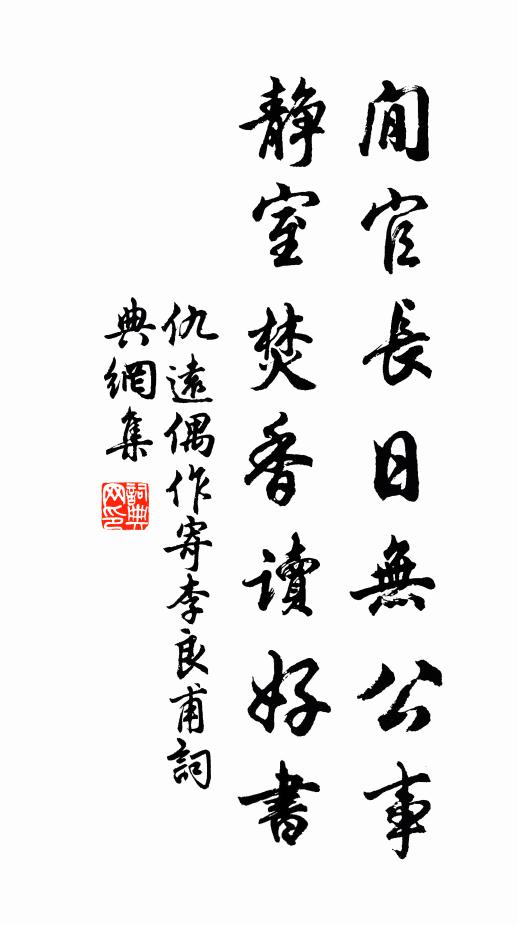 閒官長日無公事
靜室焚香讀好書
仇遠偶作寄李良甫詞
典網集
詞典網印